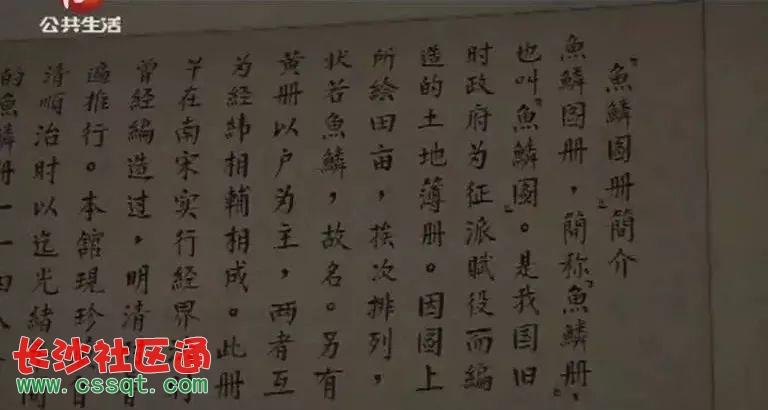 公共生活
『魚鱗图册』簡介
魚鱗图册，簡称『魚鱗册』，
也叫『魚鱗圖』。是我国旧
时政府为征派赋役而編
造的土地簿册。因圖上
所绘田亩，挨次排列，
状若魚鱗，故名。另有
黄册以户为主，两者互
为经緯相輔相成。此册
早在南宋实行经界
曾经編造过，明清
遍推行。本館現珍
清順治时以迄光緒
的魚鱗册一一
长沙社区通
www.cssqt.com